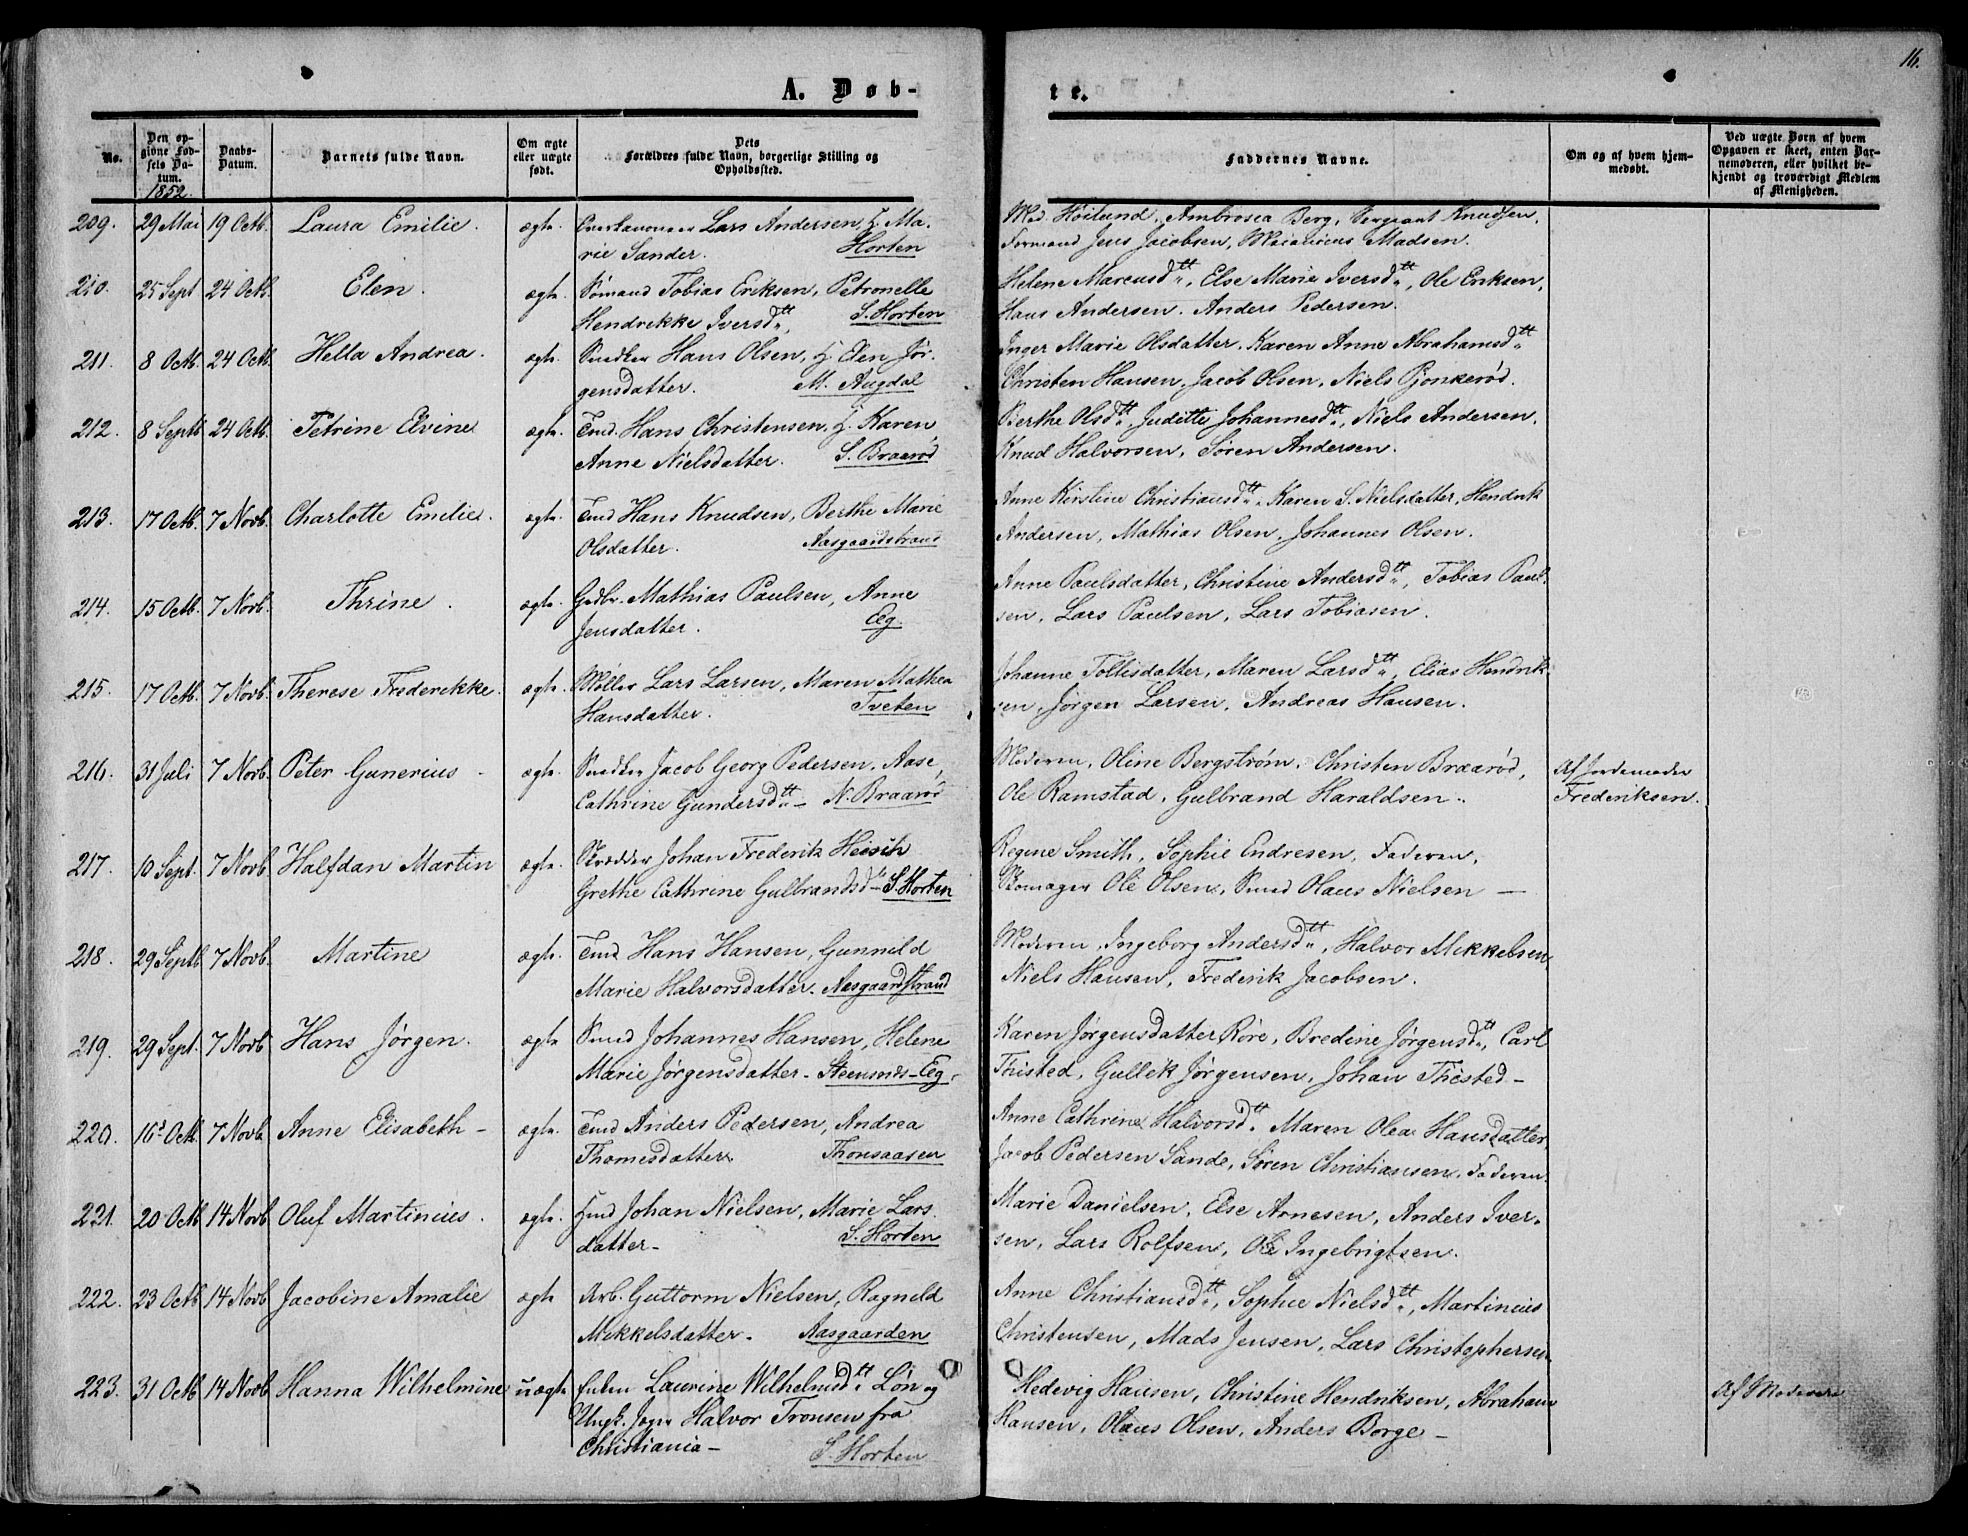 16.
A. Døb-
te.
No.
Den op-
givne Fød-
sels Da-
tum.
1852.
Daabs-
Datum.
Barnets fulde Navn.
Om ægte
eller uægte
født.
Dets
Forældres fulde Navn, borgerlige Stilling og
Opholdssted.
Faddernes Navne.
Om og af hvem hjem-
medøbt.
Ved uægte Børn af hvem
Opgaven er skeet, enten Bar-
nemoderen, eller hvilket be-
kjendt og troværdigt Medlem
af Menigheden.
209. 29 Mai 19 Octb. Laura Emilie. ægte. Lars Andersen, H. Ma-
rie Sander. Horten
Mad. Høilund, Ambrosia Berg, Sergeant Knudsen,
Formand Jens Jacobsen, Madsen.
210. 25 Sept 24 Octb. Elen. ægte. Sømand Tobias Eriksen, Petronelle
Hendrekke Iversdtt, S. Horten
Helene Marcusdtt, Else Marie Iversdtt, Ole Eriksen,
Hans Andersen. Anders Pedersen.
211. 8 Octb. 24 Octb. Hella Andrea. ægte. Snedker Hans Olsen, H. Elen Jør-
gensdatter. M. Augdal
Inger Marie Olsdatter. Karen Anne Abrahamsdtt
Christen Hansen, Jacob Olsen, Niels Pjonkerød.
212. 8 Septb 24 Octb. Petrine Elvine ægte. Tmd. Hans Christensen, H. Karen
Anne Nielsdatter. S. Braarød
Berthe Olsdtt, Juditte Johannesdtt, Niels Andersen.
Knud Halvorsen, Søren Andersen.
213. 17 Octb. 7 Novb. Charlotte Emilie. ægte. Tmd Hans Knudsen, Berthe Marie
Olsdatter. Aasgaardstrand
Anne Kirstine Christiansdtt, Karen S. Nielsdatter, Hendrik
Andersen, Mathias Olsen, Johannes Olsen.
214. 15 Octb. 7 Novb. Thrine. ægte. Gdbr. Mathias Paulsen, Anne
Jensdatter. Eeg.
Anne Paulsdatter, Christine Andersdtt, Tobias Paul-
sen, Lars Paulsen, Lars Tobiasen.
215. 17 Octb. 7 Novb. Therese Frederekke. ægte. Møller Lars Larsen, Maren Mathea
Hansdatter. Tveten
Johanne Tollisdatter, Maren Larsdtt, Elias Hendrik-
sen, Jørgen Larsen, Andreas Hansen.
216. 31 Juli 7 Novb. Peter Gunerius - ægte. Snedker Jacob Georg Pedersen, Aase
Cathrine Gundersdtt - N. Braarød
Moderen, Oline Bergstrøm, Christen Braarød,
Ole Ramstad, Gulbrand Haraldsen.
Af Jordemoder
Frederiksen.
217. 10 Sept. 7 Novb Halfdan Martin ægte. Skrædder Johan Frederik Heisch
Grethe Cathrine Gulbrandsd - S. Horten
Regine Smith, Sophie Endresen, Faderen,
Skomager Ole Olsen, Smed Olaus Nielsen —
218. 29 Septb 7 Novb. Martine ægte. Tmd Hans Hansen, Gunnild
Marie Halvorsdatter. Aasgaardstrand
Moderen, Ingeborg Andersdtt, Halvor Mikkelsen,
Niels Hansen, Frederik Jacobsen.
219. 29 Sept. 7 Novb Hans Jørgen. ægte Smed Johannes Hansen, Helene
Marie Jørgensdatter - Steensnds-Eeg.
Karen Jørgensdatter Røre, Bredine Jørgensdtt, Carl
Thisted, Gullek Jørgensen, Johan Thisted -
220. 16 Octb. 7 Novb Anne Elisabeth - ægte. Tmd Anders Pedersen, Andrea
Thomesdatter. Thonsaasen
Anne Cathrine Halvorsdtt Maren Olea Hansdatter,
Jacob Pedersen Sande, Søren Christiansen, Faderen.
221. 20 Octb 14 Novb Oluf Martinius. ægte. Johan Nielsen, Marie Lars-
datter - S. Horten
Marie Danielsen, Else Arnesen, Anders Iver-
sen, Lars Rolfsen, Ole Ingebrigtsen.
222. 23 Octb 14 Novb Jacobine Amalie ægte Arb. Guttorm Nielsen, Ragnild
Mikkelsdatter. Aasgaarden
Anne Christiansdtt, Sophie Nielsdtt, Martinius
Christensen, Mads Jensen, Lars Christophersen.
223. 31 Octb 14 Novb Hanna Wilhelmine uægte Enken Laurine Wilhelmsdtt Løn og
Ungk. Halvor Tronsen fra
Christiania - S. Horten
Hedevig Hansen, Christine Hendriksen, Abraham
Hansen, Olaus Olsen, Anders Borge -
Af Moderen